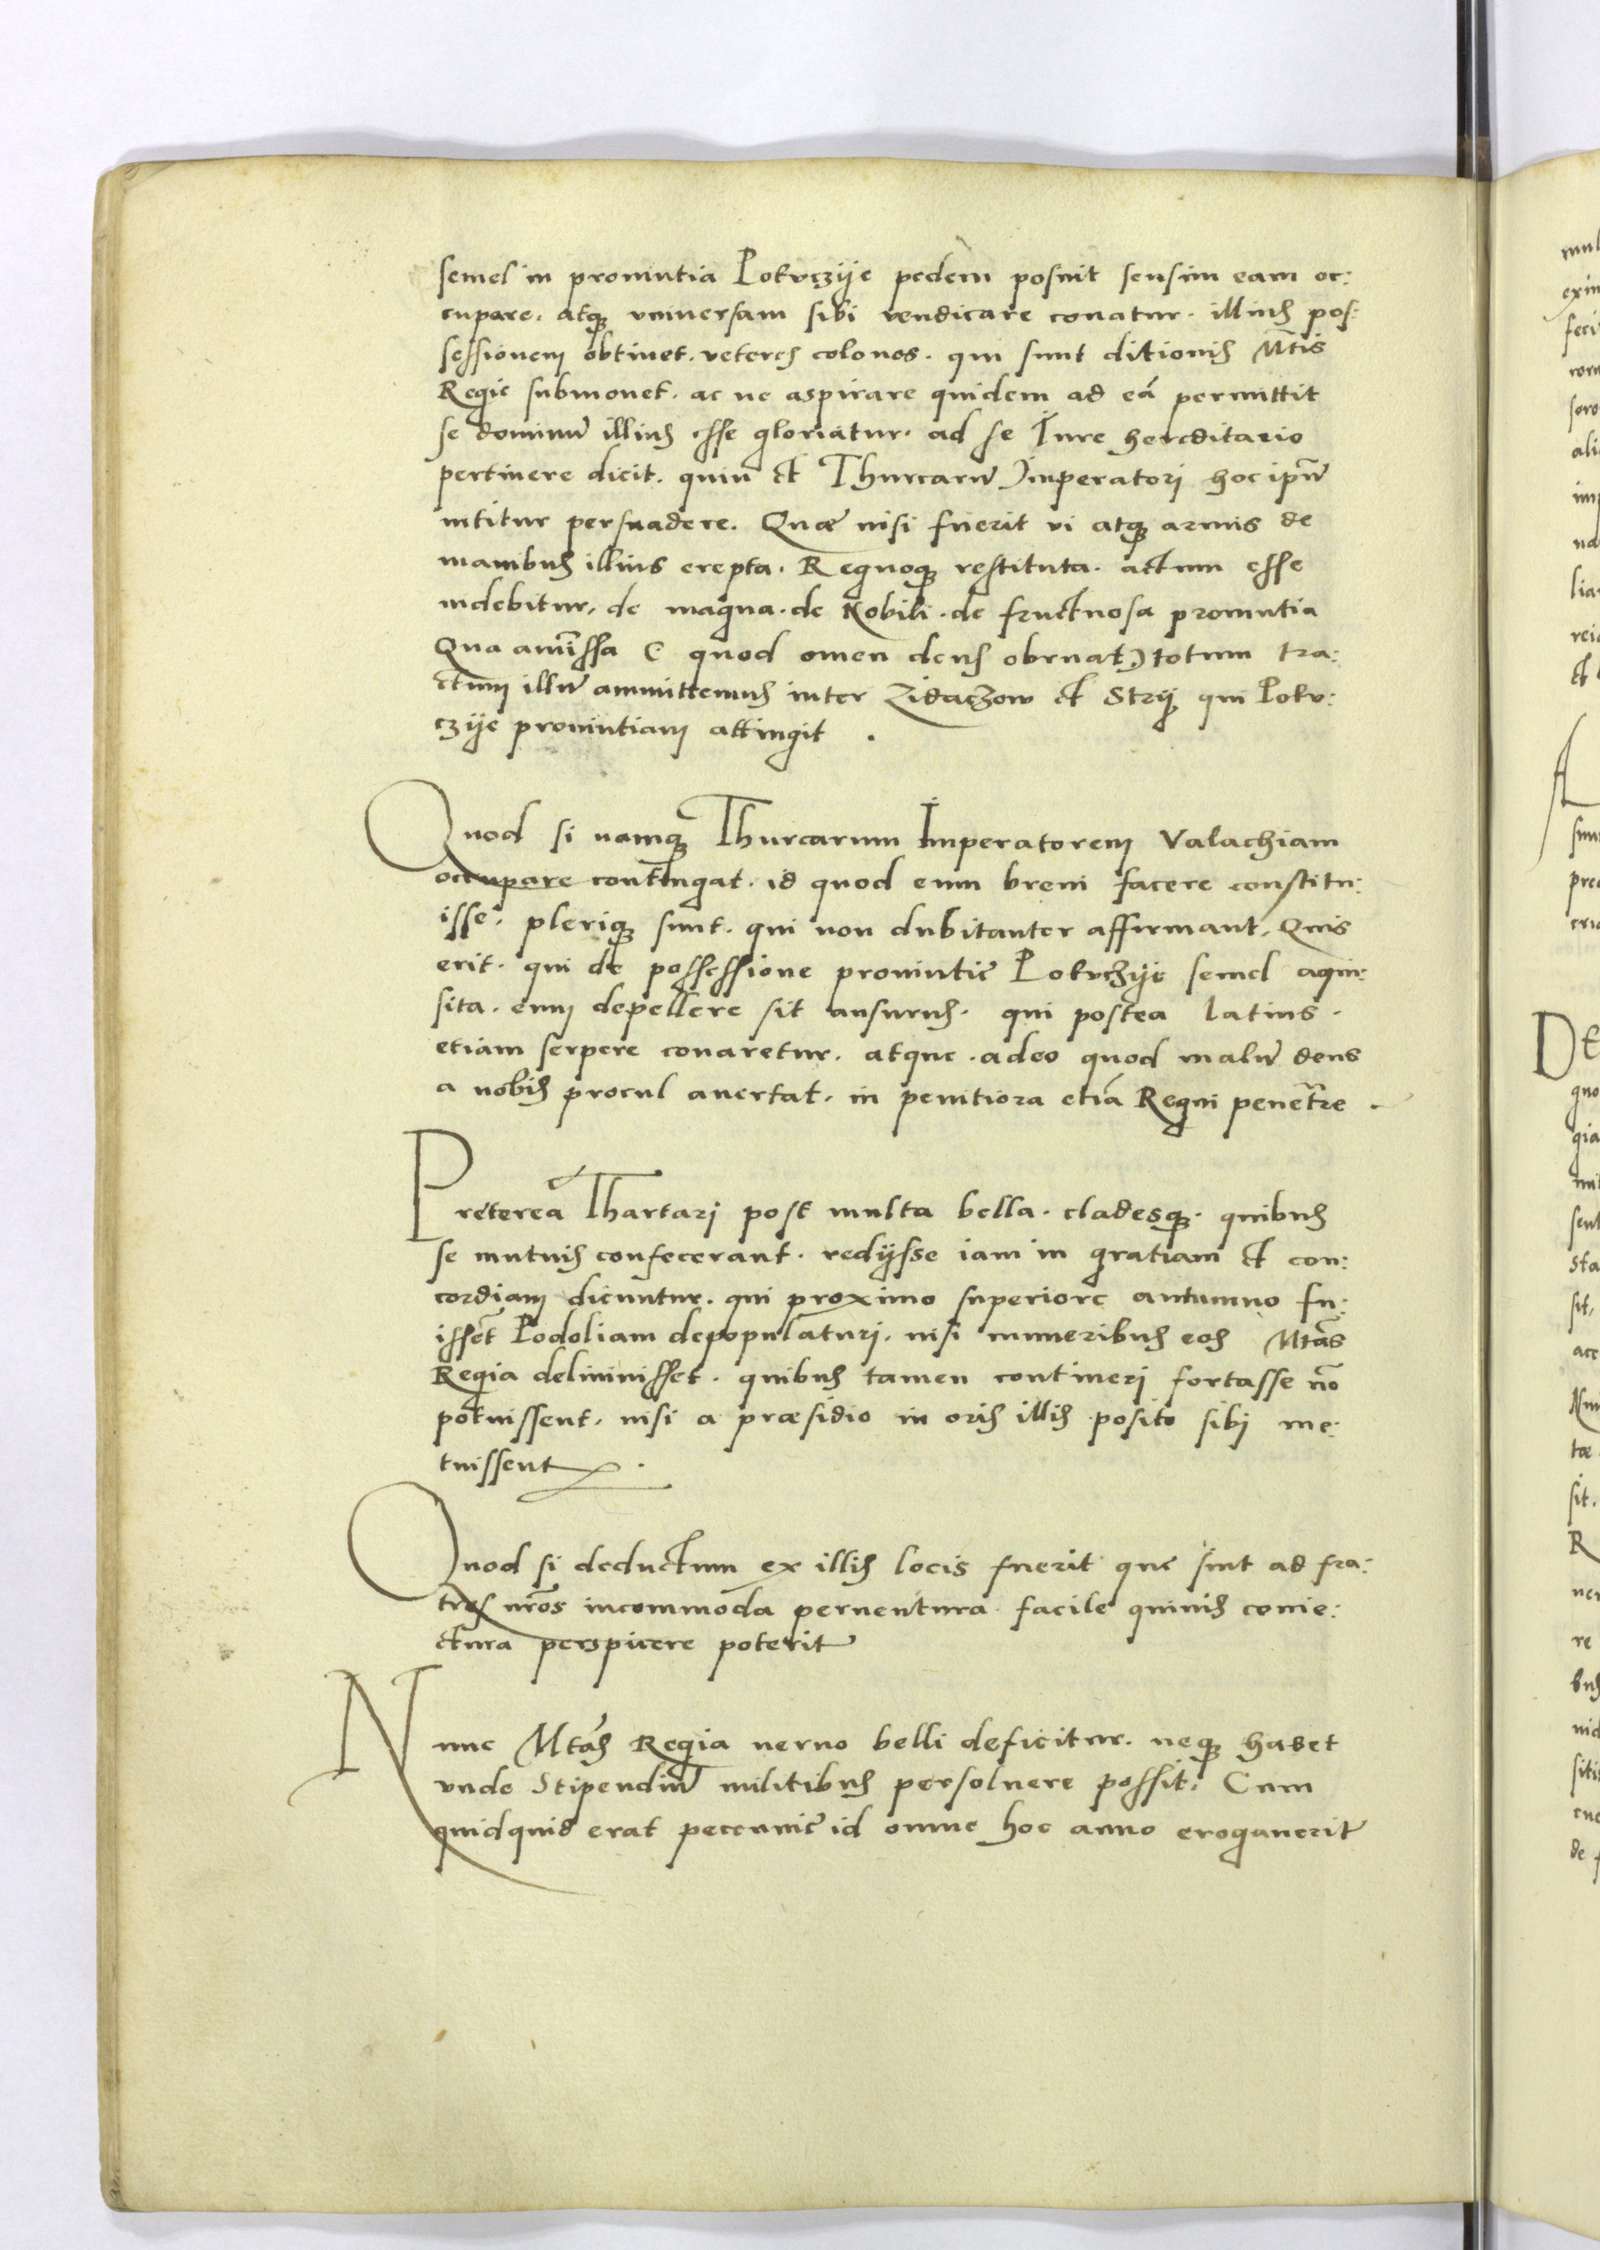 semel in prouintia Pokuczije pedem posuit sensim eam oc:
cupare. atq; vniuersam sibi vendicare conatur. illius pos:
sessionem obtinet. veteres colonos. qui sunt ditionis Mtis
Regie submouet. ac ne aspirare quidem ad eā permittit
se dominū illius esse gloriatur. ad se Iure hereditario
pertinere dicit. quin et Thurcarū Imperatori hoc ipm̄
nititur persuadere. Quæ nisi fuerit vi atq; armis de
manibus illius erepta. Regnoq; restituta. actum esse
uidebitur. de magna. de Nobili. de fructuosa prouintia
Qua amissa ( quod omen deus obruat) totum tra:
ctum illū ammittemus inter Zidaczow et Strij qui Poku:
czije prouintiam attingit .
Quod si namq; Thurcarum Imperatorem Valachiam
occupare contingat. id quod eum breui facere constitu:
isse. pleriq; sunt. qui non dubitanter affirmant. Quis
erit. qui de possessione prouintię Pokuczije semel aqui:
sita. eum depellere sit ausurus. qui postea latius.
etiam serpere conaretur. atque. adeo quod malū deus
a nobis procul auertat. in penitiora etiā Regni penetrre .
Preterea Thartari post multa bella. cladesq;. quibus
se mutuis confecerant. redijsse iam in gratiam et con:
cordiam dicuntur. qui proximo superiore autumno fu:
issēt Podoliam depopulaturi. nisi muneribus eos Mtas
Regia delininisset. quibus tamen contineri fortasse nō
potuissent. nisi a præsidio in oris illis posito sibi me:
tuissent .
Quod si deductum ex illis locis fuerit que sint ad fra:
tres nr̄os incommoda peruentura facile quiuis conie:
ctura perspicere poterit
Nunc Mtas Regia neruo belli deficitur. neq; habet
vnde Stipendiū militibus persoluere possit. Cum
quidquid erat pecunię id omne hoc anno erogauerit